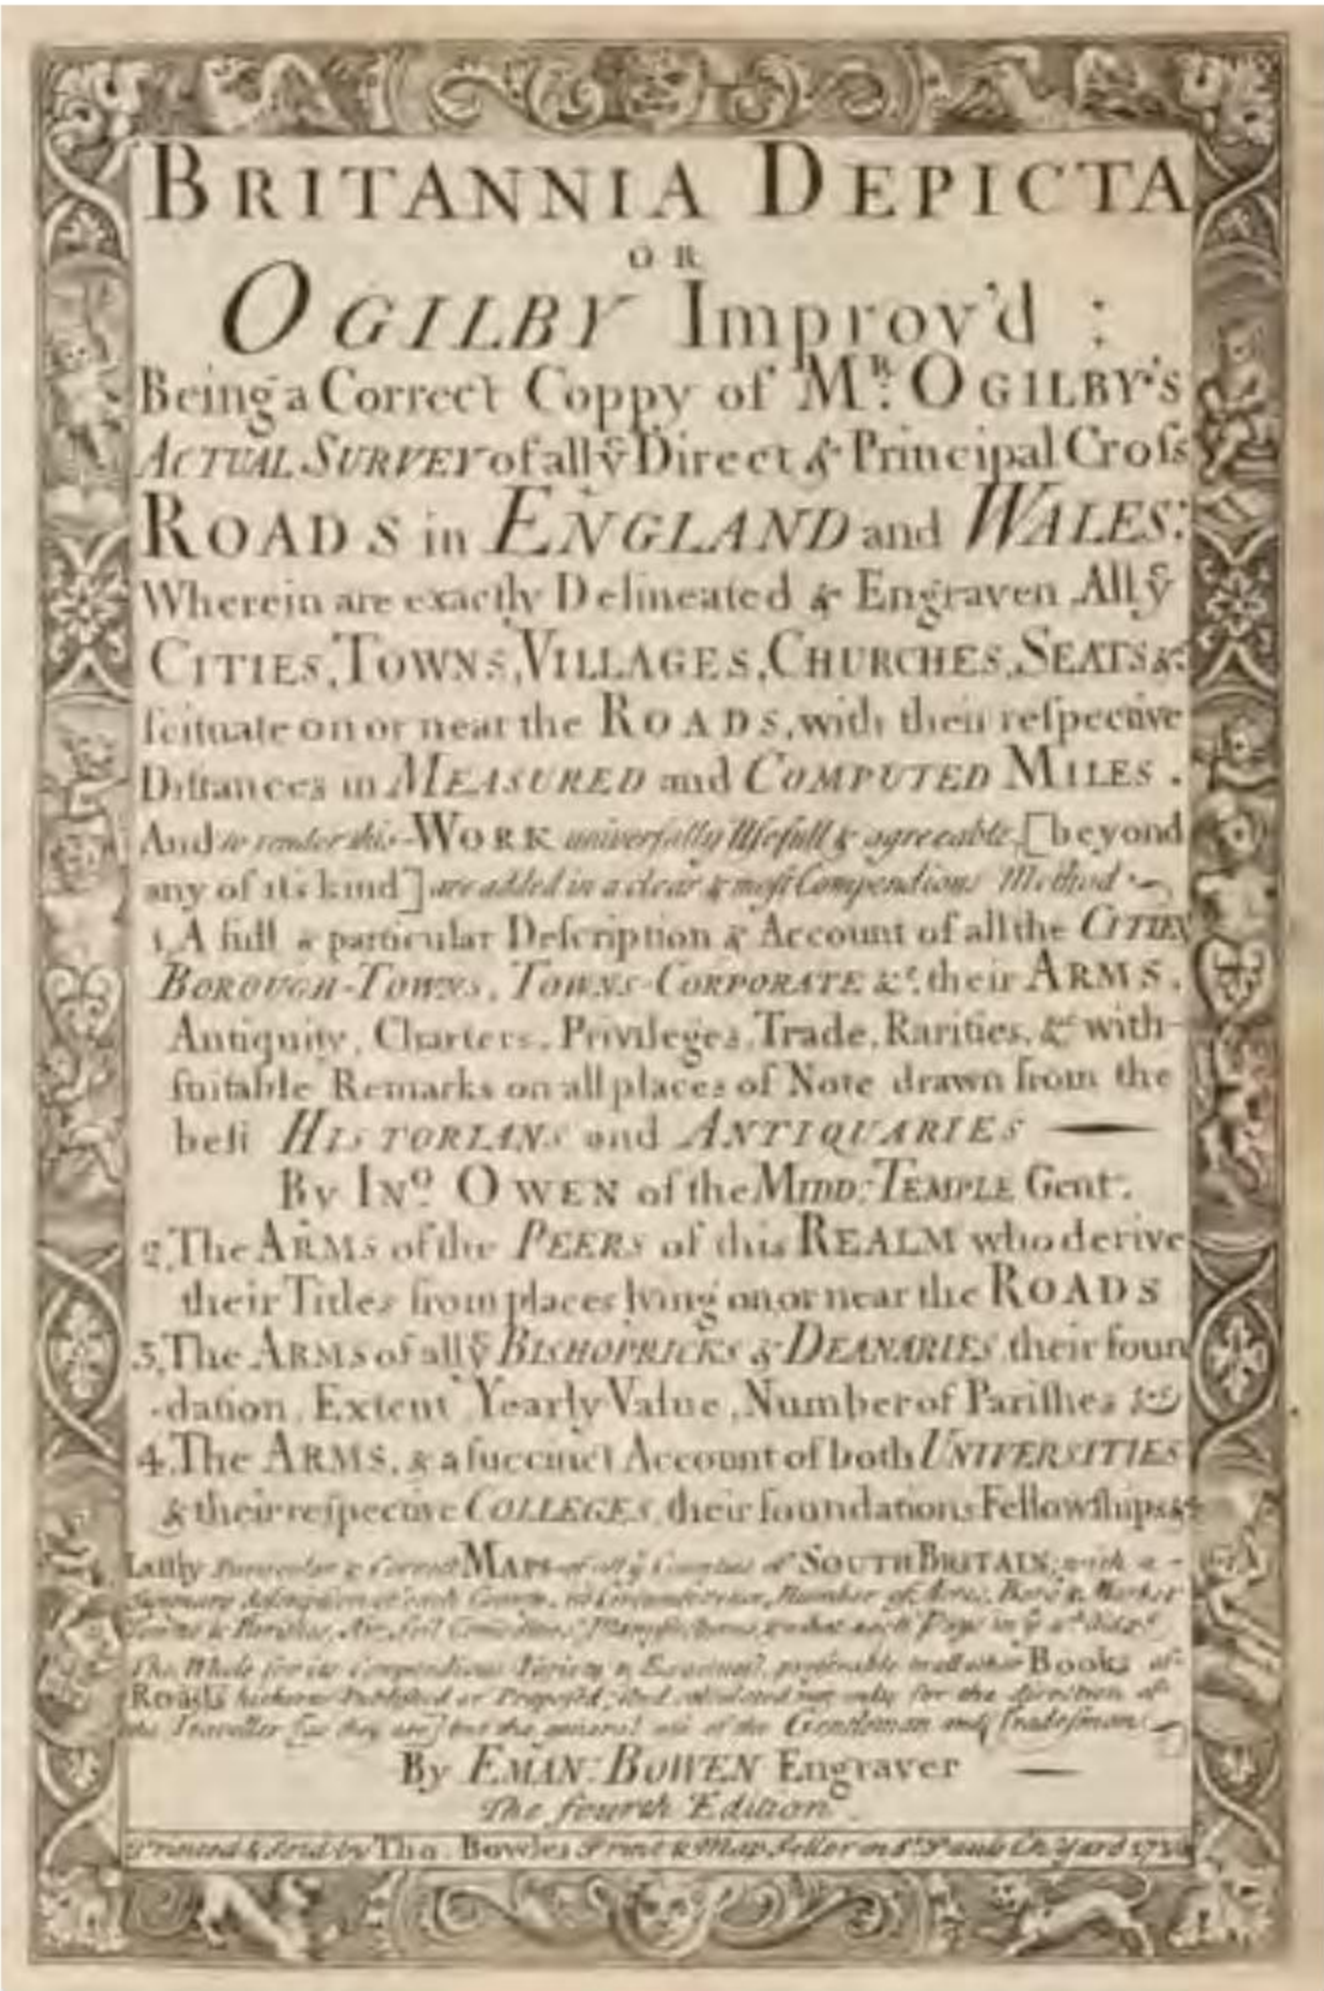 BRITANNIA DEPICTA
OR
OGILBY Improv'd :
Being a Correct Coppy of Mr. OGILBY'S
ACTUAL SURVEY of all yͤ Direct & Principal Croſs
ROADS in ENGLAND and WALES:
Wherein are exactly Delineated & Engraven All yͤ
CITIES, TOWNS, VILLAGES, CHURCHES, SEATS &c.
ſcituate on or near the ROADS, with their reſpective
Diſtances in MEASURED and COMPUTED MILES.
And to render this WORK univerſally Uſefull & agreeable, [beyond
any of its kind] are added in a clear & moſt Compendious Method
1. A full & particular Deſcription & Account of all the CITIES
BOROUGH-TOWNS, TOWNS-CORPORATE &c. their ARMS,
Antiquity, Charters, Privileges, Trade, Rarities, &c. with
ſuitable Remarks on all places of Note drawn from the
beſt HISTORIANS and ANTIQUARIES
By INO. OWEN of the MIDD: TEMPLE Gent.
2. The ARMS of the PEERS of this REALM who derive
their Titles from places lying on, or near the ROADS
3. The ARMS of all yͤ BISHOPRICKS & DEANARIES, their foun
-dation, Extent, Yearly Value, Number of Pariſhes &c.
4. The ARMS, & a ſuccinct Account of both UNIVERSITIES
& their reſpective COLLEGES, their foundations Fellowſhips &c
Laſtly Particular & Correct MAPS of all yͤ Counties of SOUTH BRITAIN; with a
Summary deſcription of each County, its Circumference, Number of Acres, Boro' & Market
Towns & Pariſhes, Air, Soil
The Whole for its Compendious Variety & Exactneſs, preferable to all other Books of
Roads hitherto Publiſhed or Propoſed; And calculated not only for the direction of
the Traveller [as they are] but the general uſe of the Gentleman and Tradeſman.
By EMAN: BOWEN Engraver
The fourth Edition
Printed & Sold by Tho. Bowles Print & Map Seller in St. Pauls Ch. Yard